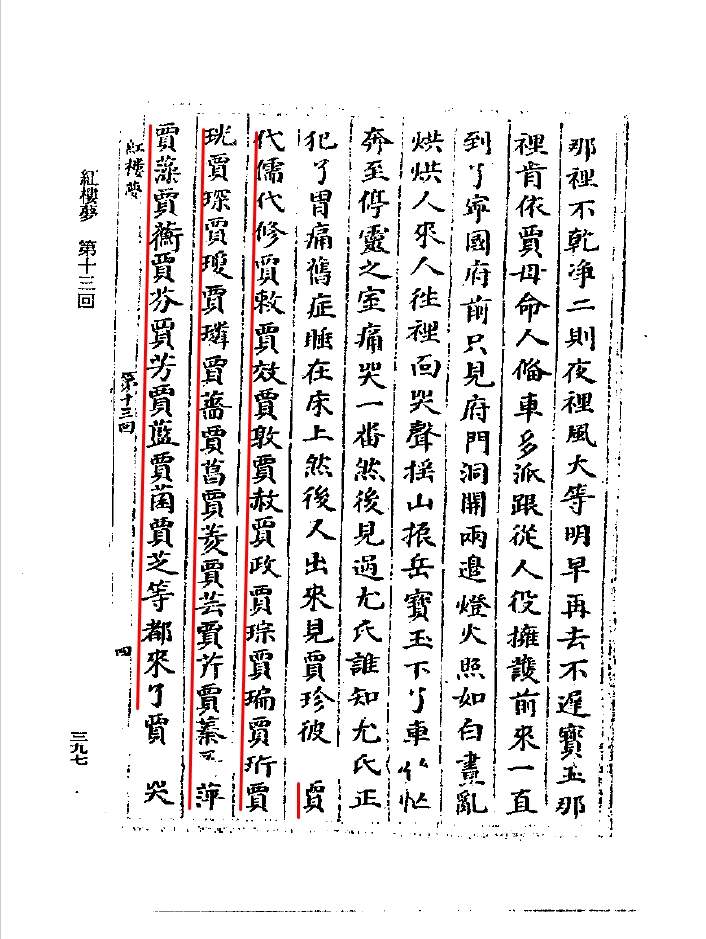 那裡不乾净二則夜裡風大等明早再去不遲寶玉那
裡肯依賈母命人備車多派跟從人役擁護前來一直
到了寧國府前只見府門洞開兩邊燈火照如白晝亂
烘烘人來人往裡面哭聲揺山振岳寶玉下了車忙忙
奔至停靈之室痛哭一番然後見過尤氏誰知尤氏正
犯了胃痛舊症睡在床上然後又出來見賈珍彼 賈
代儒代修賈敕賈效賈敦賈赦賈政賈琮賈㻞賈珩賈
珖賈琛賈瓊賈璘賈薔賈菖賈菱賈芸賈芹賈蓁 萍
賈藻賈蘅賈芬賈芳賈藍賈菌賈芝等都來了賈 哭
紅樓夢
第十三回
四
紅樓夢 第十三回
三九七